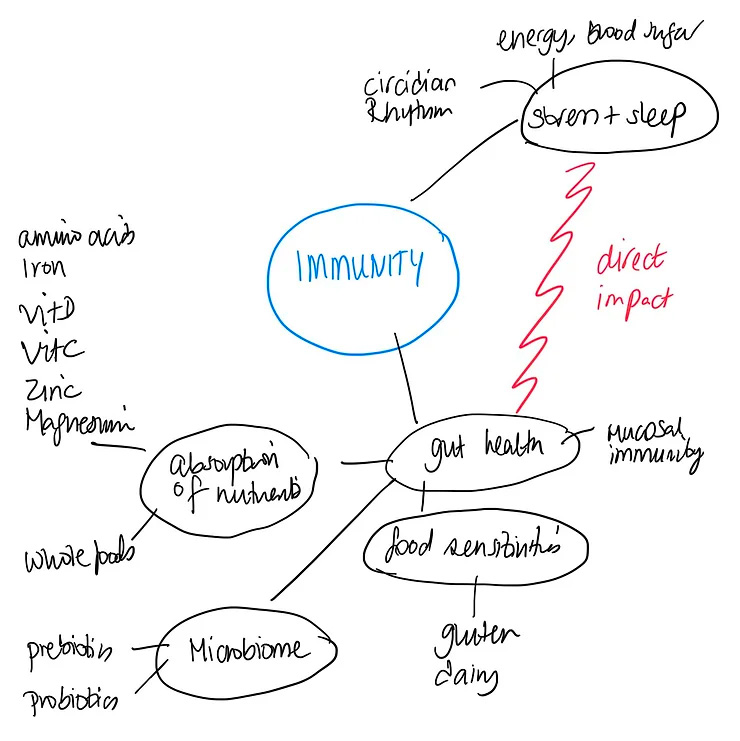 energy, blood sugar
circidian
Rhytum
stress + sleep
IMMUNITY
direct
impact
amino acids
Iron
VitD
VitC
Zinc
Magnesium
gut health
mucosal
immunity
absorption
of nutrients
food sensitivities
whole foods
gluten
dairy
prebiotics
Microbiome
probiotics